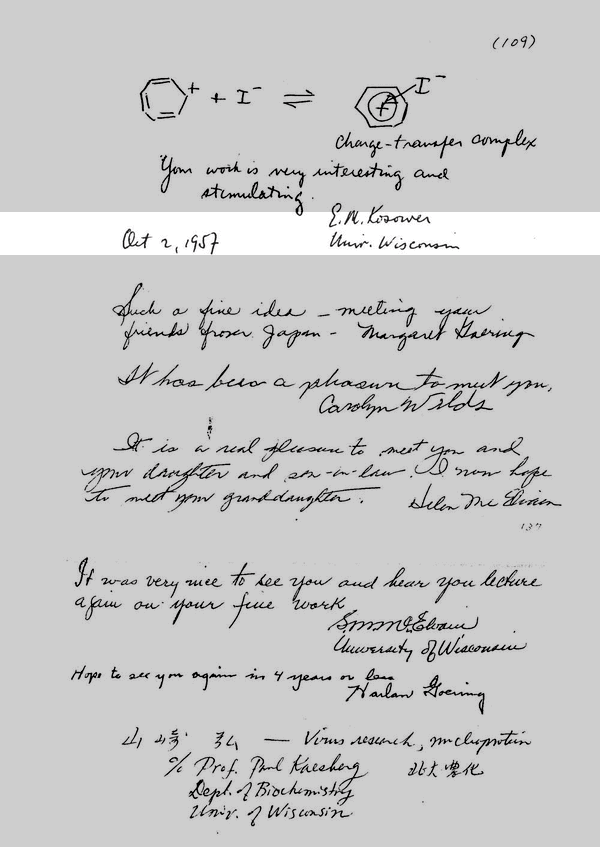 (109)
+ + I⁻ ⇌ + I⁻
Charge-transfer complex
Your work is very interesting and
stimulating.
E. M. Kosower
Oct 2, 1957
Univ. Wisconsin
Such a fine idea — meeting your
friends from Japan - Margaret Goering
It has been a pleasure to meet you,
Carolyn Wilds
It is a real pleasure to meet you and
your daughter and son-in-law. I now hope
to meet your granddaughter.
Helen Mc Elvain
137
It was very nice to see you and hear you lecture
again on your fine work
S. M. McElvain
University of Wisconsin
Hope to see you again in 4 years or less
Harlan Goering
山崎 — Virus research, nucleoprotein
c/o Prof. Paul Kaesberg 北大農化
Dept. of Biochemistry
Univ. of Wisconsin